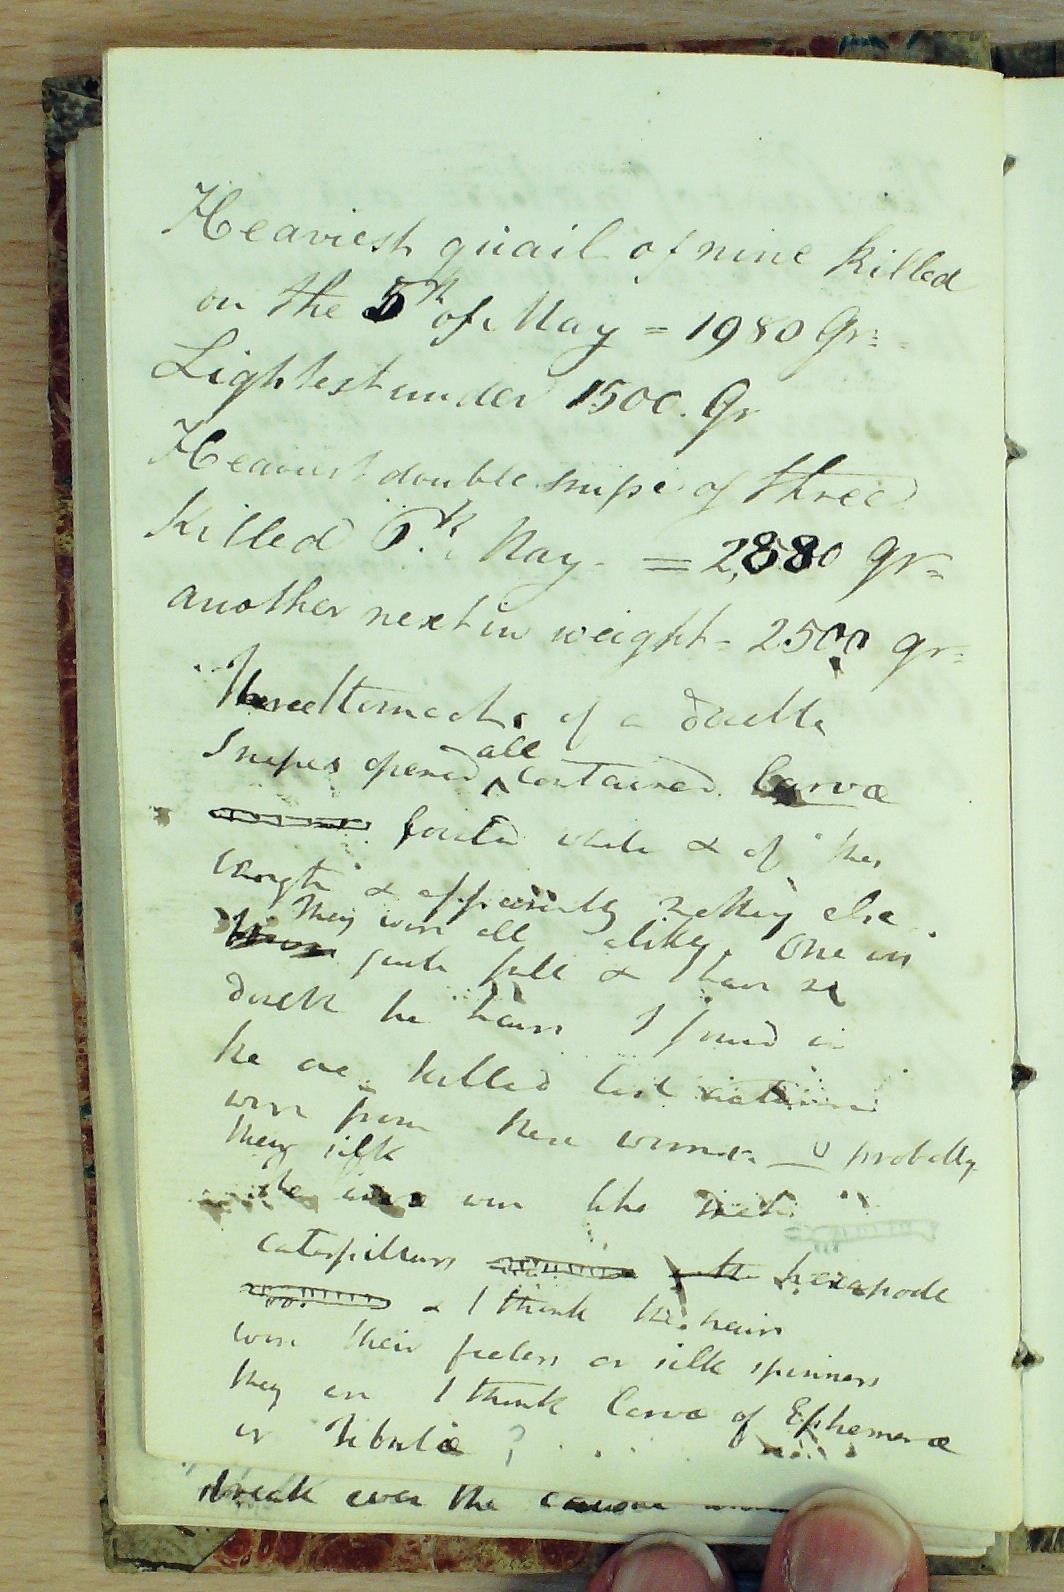 Heaviest quail of nine killed
on the 5th of May = 1980 Gr:
Lightest under 1500. Gr
Heaviest double snipe of three
killed May. = 2,880 gr=
another next in weight = 2500 gr=
Three stomachs of a double
Snipes opened all contained larvæ
found white & of this
length & apparently nothing else
They were all alike. One was
quite full & I have no
doubt the hairs I found in
the one killed last
were from these worms & probably
they silk
the were like
caterpillars hexapode
& I think the hairs
were their feelers or silk spinners
they are I think larvæ of Ephemeræ
or ?
break over the